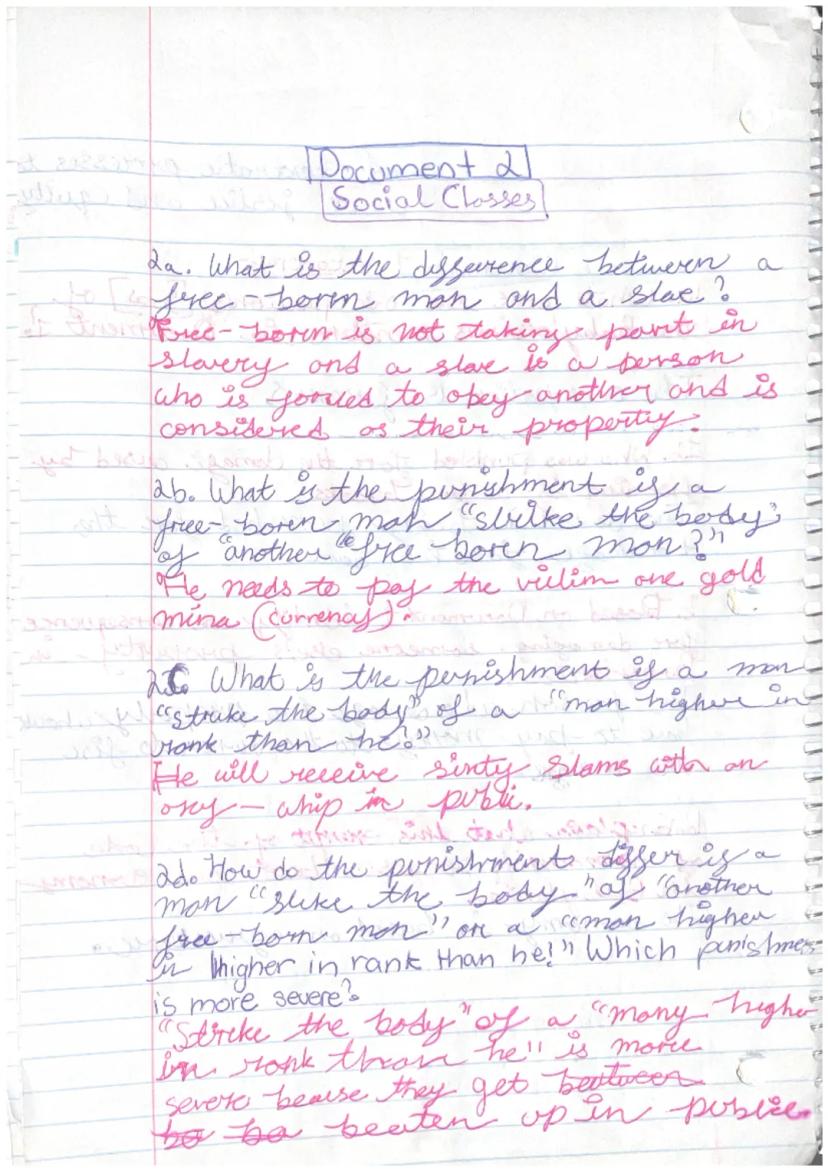 Document 2
Social Classes
2a. What is the difference between a
free-born man and a slave?
Free-born is not taking part in
slavery and a slave is a person
who is forced to obey another and is
considered as their property.
2b. What is the punishment if a
free-born man "strike the body"
of "another free-born man?"
He needs to pay the victim one gold
mina (currency).
2c. What is the punishment if a man
"strike the body" of a "man higher in
rank than he?"
He will receive sixty slams with an
oxy-whip in public.
2d. How do the punishment differ if a
man "strike the body" of "another
free-born man" or a "man higher
in higher in rank than he!" Which punishmen
is more severe?
"Strike the body" of a "many higher
in rank than he" is more
severe becuse they get between
be ba beaten up in public.